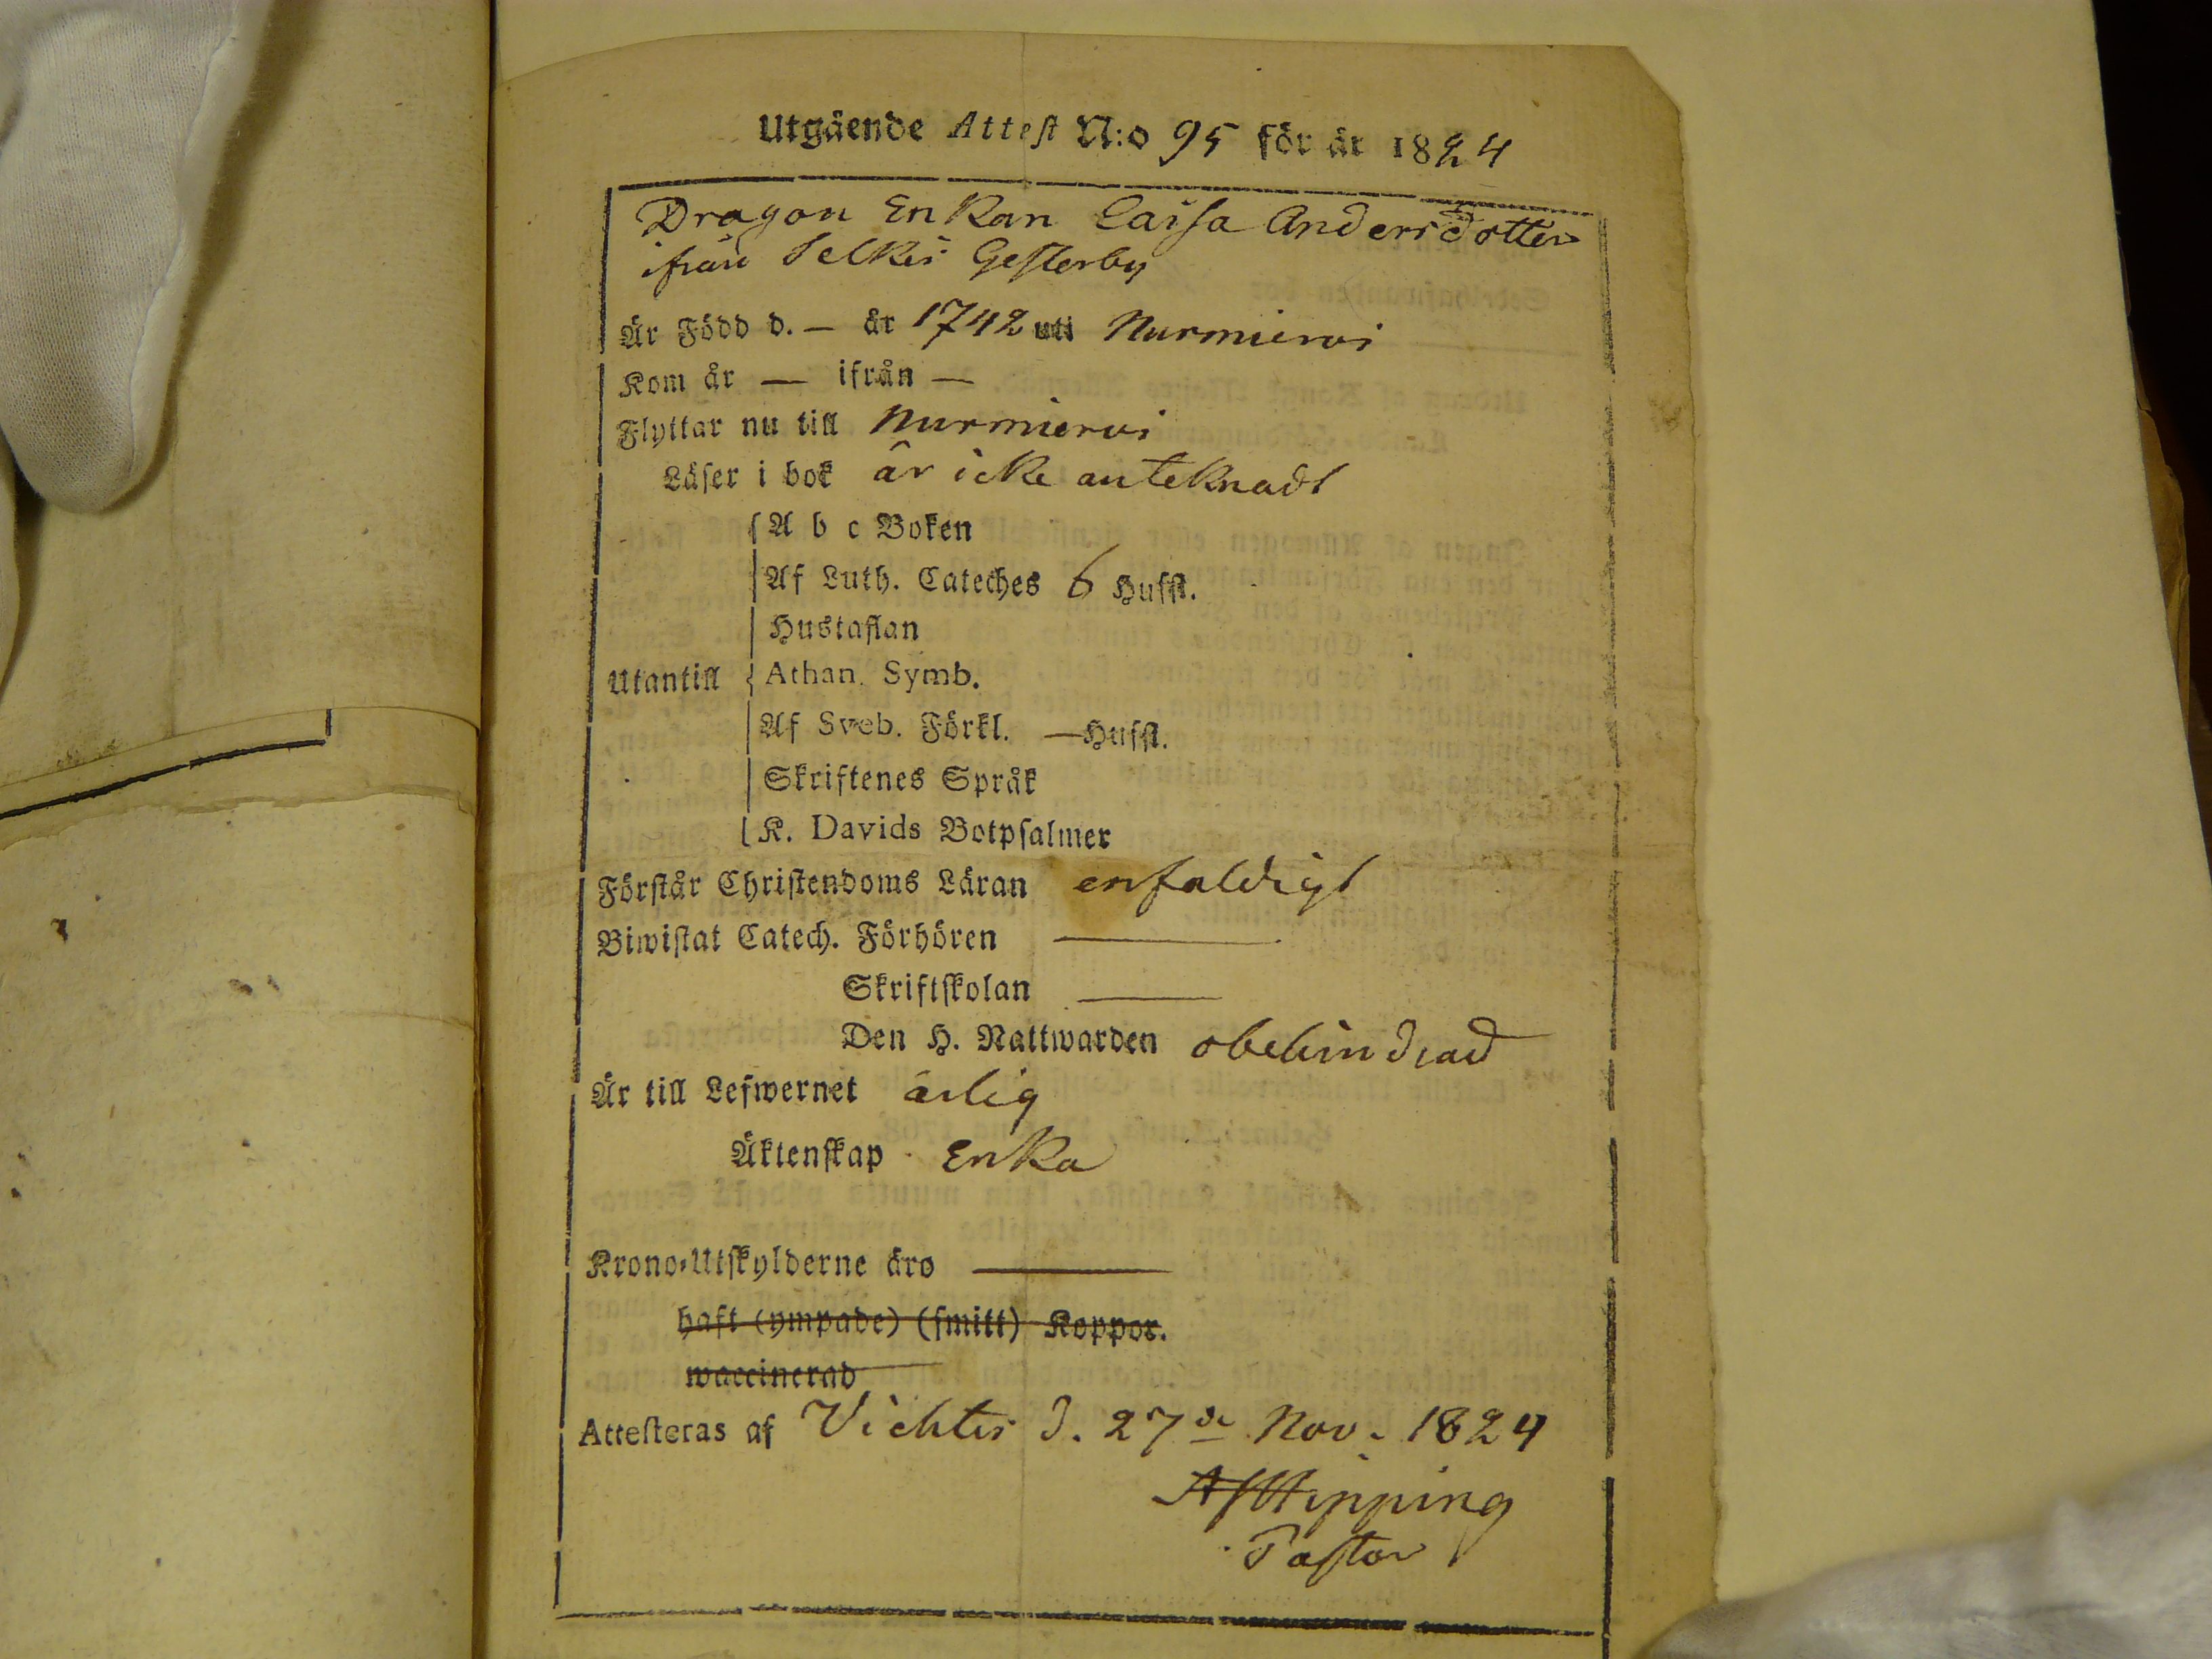 Utgående Attest N:o 95 för år 1824
Dragon Enkan Caisa Andersdotter
ifrån Selkis Gesterby
Är Född d. — år 1742 uti Nurmierwi
Kom år — ifrån —
Flyttar nu till Nurmierwi
Läser i bok är icke anteknadt
A b c Boken
Af Luth. Cateches 6 Hufst.
Hustaflan
Utantill Athan. Symb.
Af Sveb. Förkl. — Hufst.
Skriftenes Språk
K. Davids Botpsalmer
Förstår Christendoms Läran enfaldigt
Biwistat Catech. Förhören —
Skriftskolan —
Den H. Nattwarden obehindrad
Är till Lefwernet ärlig
Äktenskap Enka
Krono-Utskylderne äro —
haft (ympade) (smitt) Koppor.
waccinerad
Attesteras af Vichtis d. 27de Nov. 1824
Hipping
Pastor